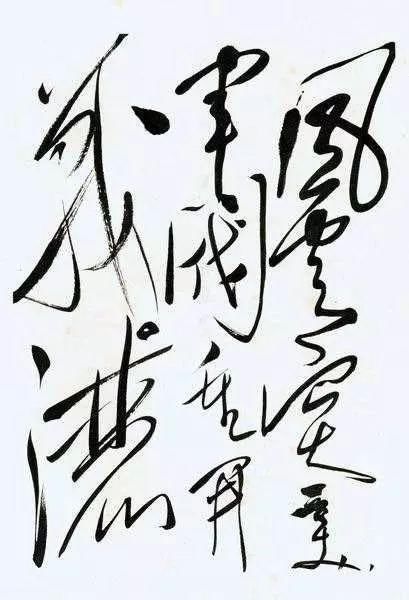 風雲突變
軍閥重開
戰灑